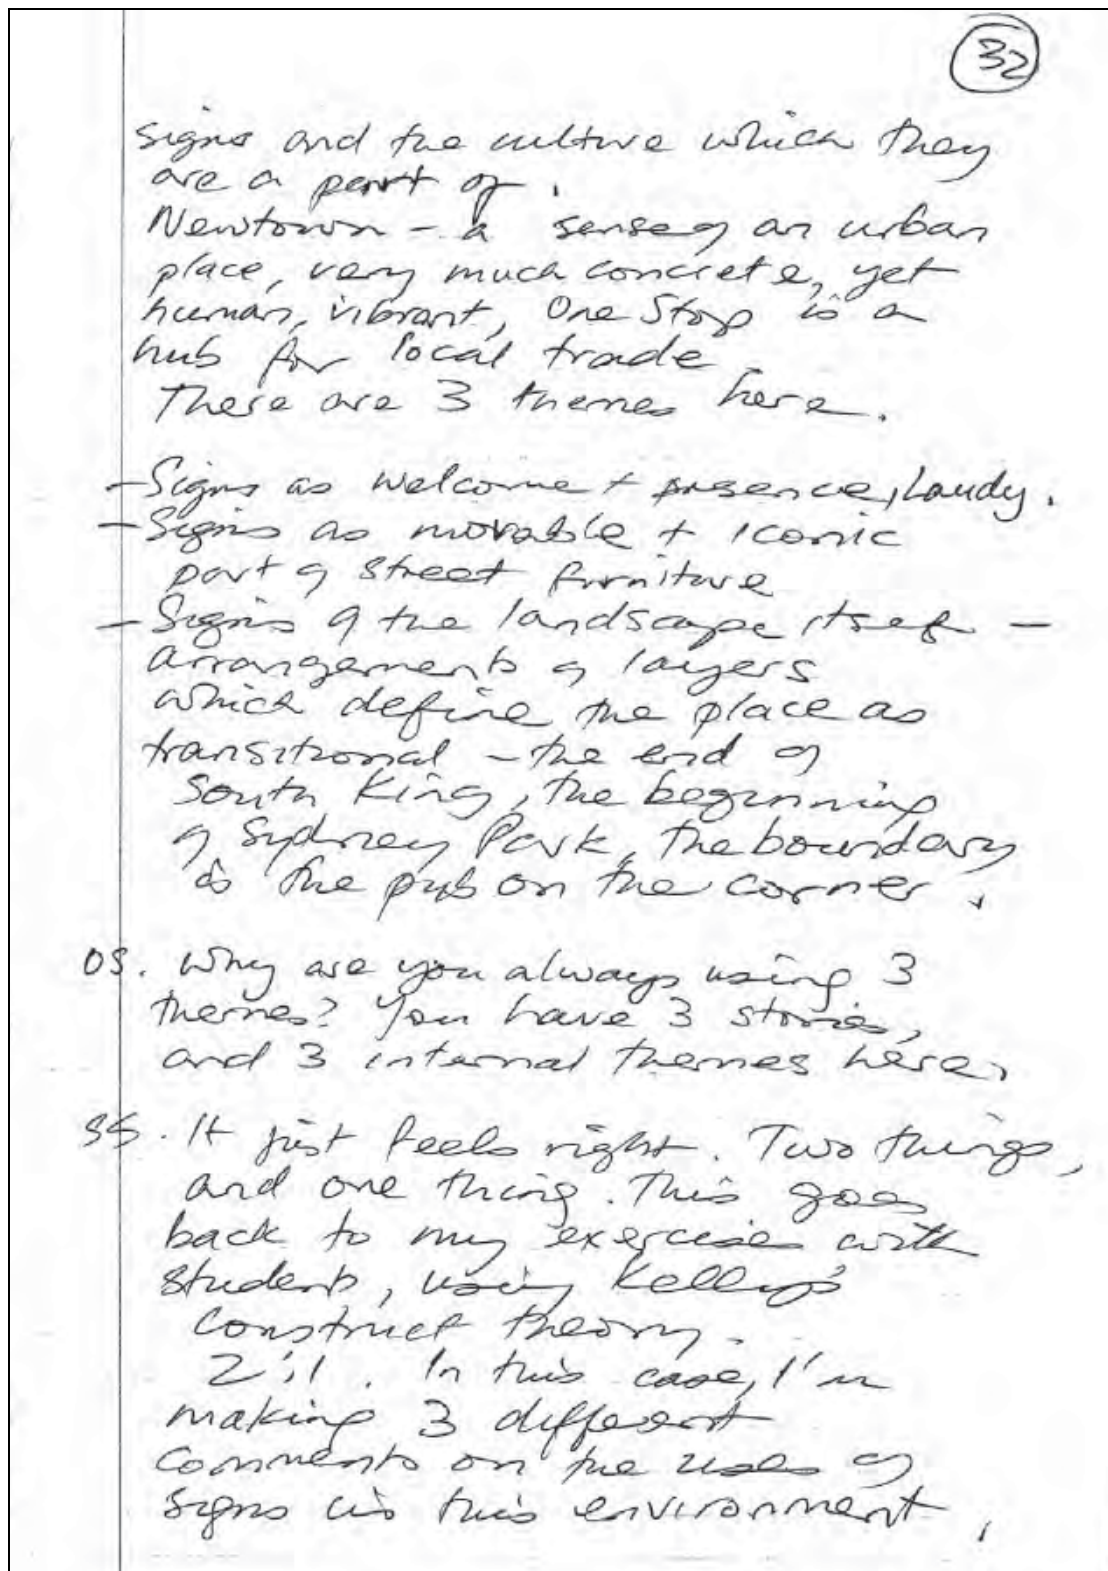 32
signs and the culture which they
are a part of.
Newtown - a sense of an urban
place, very much concrete, yet
human, vibrant, One Stop is a
hub for local trade.
There are 3 themes here.
- Signs as welcome + presence,
- Signs as movable + iconic
part of street furniture
- Signs of the landscape itself -
arrangements of layers
which define the place as
transitional - the end of
South King, the beginning
of Sydney Park, the boundary
is the pub on the corner.
OS. Why are you always using 3
themes? You have 3 stories,
and 3 internal themes here.
SS. It just feels right. Two things,
and one thing. This goes
back to my exercises with
students, using Kelly's
construct theory.
2:1. In this case, I'm
making 3 different
comments on the uses of
signs in this environment.